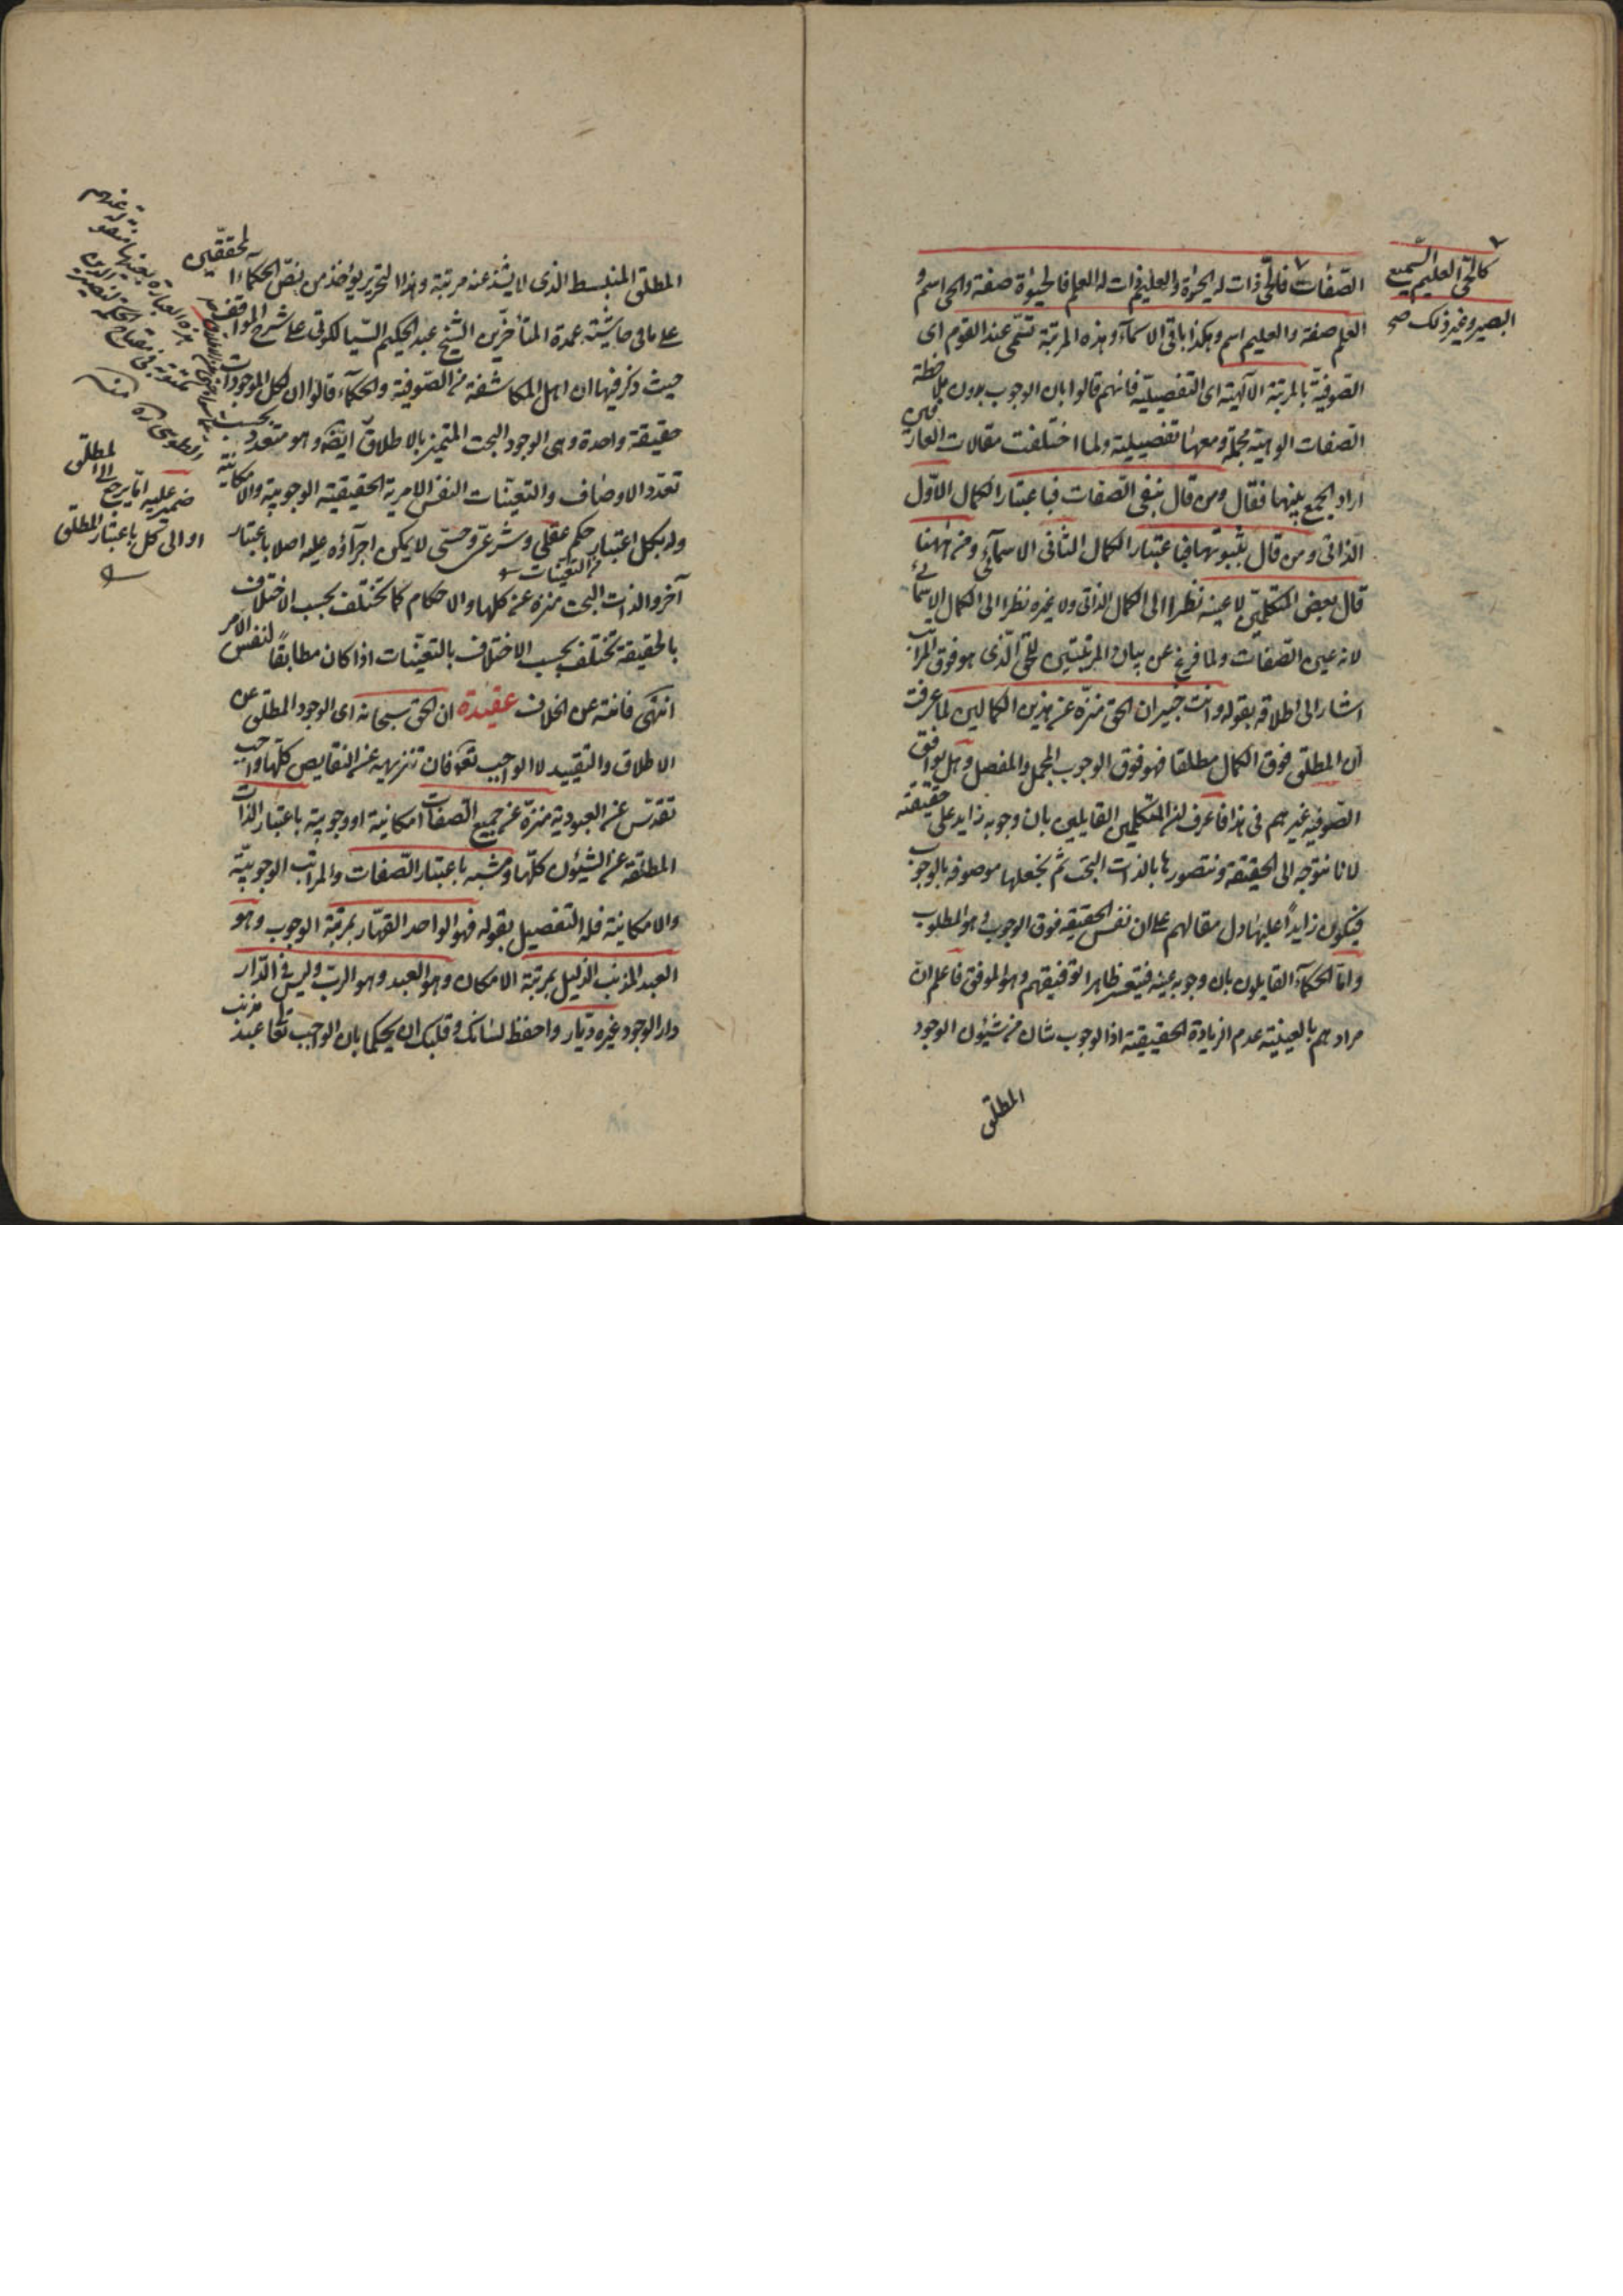 كالحي العليم السميع
البصير وغير ذلك صح
الصفات فالحي ذات له الحيوة والعليم ذات له العلم فالحيوة صفة والحي اسم و
العلم صفة والعليم اسم وهكذا باقي الاسمآء وهذه المرتبة تسمى عند القوم اى
الصوفية بالمرتبة الآلهية اى التفصيلية فانهم قالوا بان الوجوب بدون ملاحظة
الصفات الوهية مجملة ومعها تفصيلية ولما اختلفت مقالات العارفين
اراد الجمع بينها فقال ومن قال بنفى الصفات فباعتبار الكمال الاول
الذاتى ومن قال بثبوتها فباعتبار الكمال الثانى الاسمآئى ومن ههنا
قال بعض المتكلمين لا عينه نظرا الى الكمال الذاتى ولا غيره نظرا الى الكمال الاسمائى
لانه عين الصفات ولما فرغ عن بيان المرتبتين للحق الذى هو فوق المراتب
اشار الى اطلاقه بقوله وانت خبير ان الحق منزه عن هذين الكمالين لما عرفت
ان المطلق فوق الكمال مطلقا فهو فوق الوجوب المجمل والمفصل وهل يوافق
الصوفية غيرهم فى هذا فاعرف ان المتكلمين القايلين بان وجوبه زايد على حقيقته
لانا نتوجه الى الحقيقة ونتصورها بالذات البحت ثم نجعلها موصوفه بالوجوب
فيكون زايدا عليها دل مقالهم على ان نفس الحقيقة فوق الوجوب وهو المطلوب
واما الحكمآء القايلون بان وجوبه عينه فيتعسر ظاهرا توفيقهم وهو الموفق فاعلم ان
مرادهم بالعينية عدم الزيادة الحقيقية اذ الوجوب شان من شئون الوجود
المطلق
المطلق المنبسط الذى لا يشذ عنه مرتبة وهذا التحرير يؤخذ من نص الحكماء المحققين
على ما فى حاشية عمدة المتأخرين الشيخ عبد الحكيم السيالكوتى على شرح المواقف
حيث ذكر فيها ان اهل المكاشفة من الصوفية والحكمآء قالوا ان لكل الموجودات
حقيقة واحدة وهى الوجود البحت المتميز بالاطلاق ايضا وهو متعدد بحسب
تعدد الاوصاف والتعينات النفس الامرية الحقيقية الوجوبية والامكانية
وله بكل اعتبار حكم عقلى وشرعى وحسى لا يمكن اجرآؤه عليه اصلا باعتبار
من التعينات
آخر والذات البحت منزه عن كلها والاحكام كما تختلف بحسب الاختلاف
بالحقيقة تختلف بحسب الاختلاف بالتعينات اذا كان مطابقا لنفس الامر
انتهى فانته عن الخلاف عقيدة ان الحق سبحانه اى الوجود المطلق عن
الاطلاق والتقييد لا الواجب تعالى فان تنزيهه عن النقايص كلها واجب
تقدس عن العبودية منزه عن جميع الصفات امكانية او وجوبية باعتبار الذات
المطلقة عن الشئون كلها ومشبه باعتبار الصفات والمراتب الوجوبية
والامكانية فله التفصيل بقوله فهو الواحد القهار بمرتبة الوجوب وهو
العبد المذنب الذليل بمرتبة الامكان وهو العبد وهو الرب وليس فى الدار
دار الوجود غيره ديار واحفظ لسانك وقلبك ان يحكما بان الواجب تعالى عبد
هذه العبارة بعينها منقولة عنهم
ضمير عليه اما يرجع الى المطلق
او الى كل باعتبار المطلق